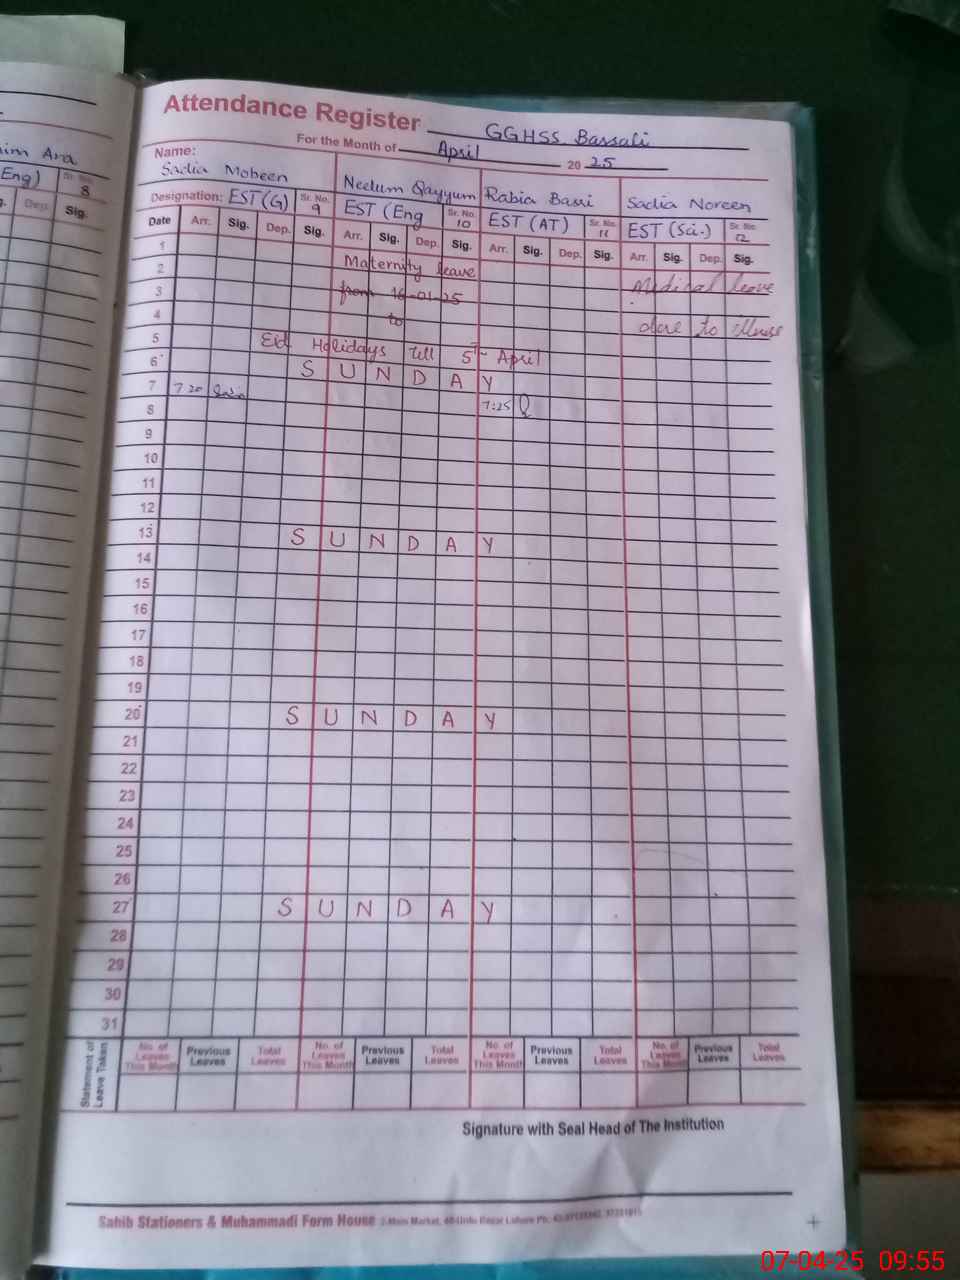 Attendance Register GGHSS Bassali
For the Month of April 20 25
Name:
Sadia Mobeen Neelum Qayyum Rabia Basri Sadia Noreen
Designation: EST (G) Sr. No. 9 EST (Eng Sr. No. 10 EST (AT) Sr. No. 11 EST (Sci.) Sr. No. 12
Date Arr. Sig. Dep. Sig. Arr. Sig. Dep. Sig. Arr. Sig. Dep. Sig. Arr. Sig. Dep. Sig.
1 Maternity leave
2 Medical leave
3 from 16-01-25
4 to due to illness
5 Eid Holidays till 5th April
6 SUNDAY
7 7 20 7:25
8
9
10
11
12
13 SUNDAY
14
15
16
17
18
19
20 SUNDAY
21
22
23
24
25
26
27 SUNDAY
28
29
30
31
Statement of Leave Taken
No. of Leaves This Month Previous Leaves Total Leaves No. of Leaves This Month Previous Leaves Total Leaves No. of Leaves This Month Previous Leaves Total Leaves No. of Leaves This Month Previous Leaves Total Leaves
Signature with Seal Head of The Institution
Sahib Stationers & Muhammadi Form House
im Ara
Eng) Sr. No. 8
Dep. Sig.
07-04-25 09:55